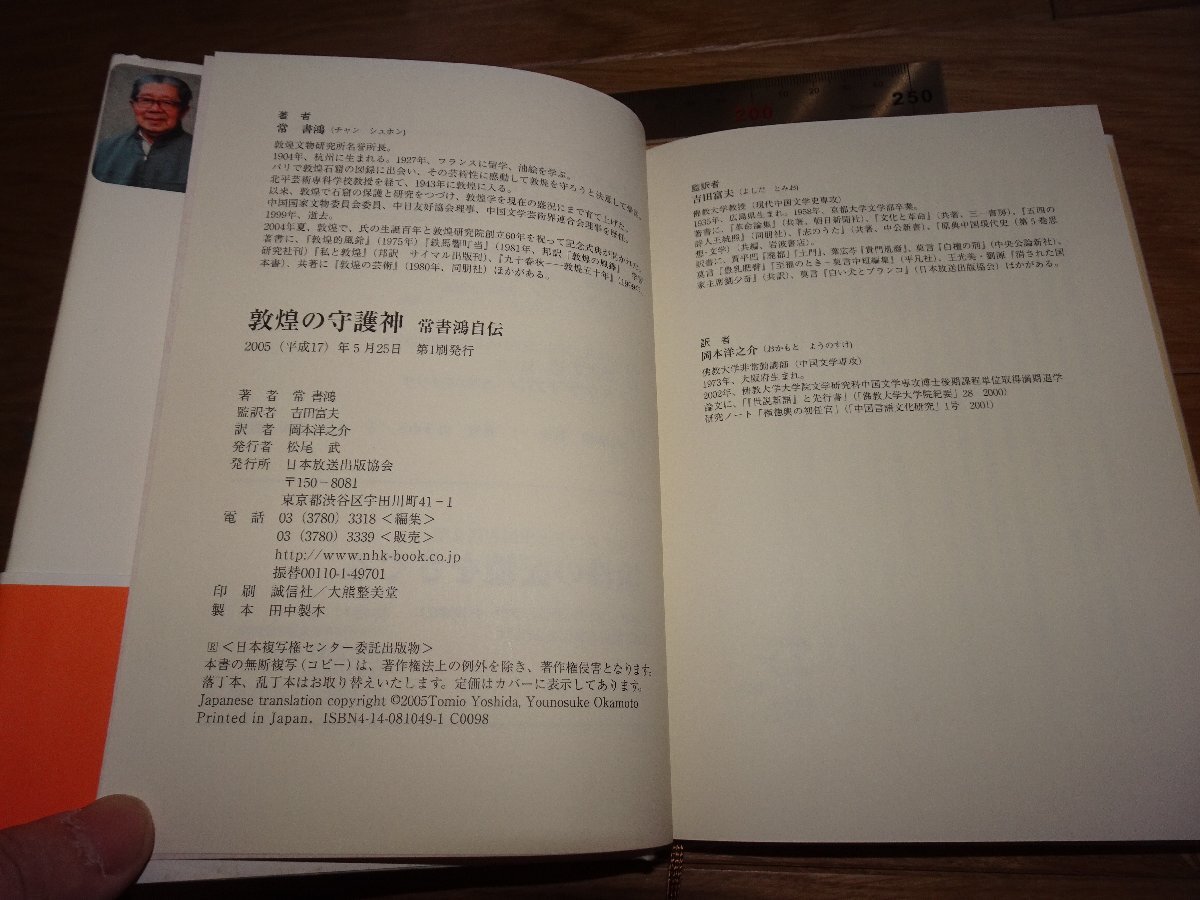 著 者
常 書鴻 (チャン シュホン)
敦煌文物研究所名誉所長。
1904年、杭州に生まれる。1927年、フランスに留学、油絵を学ぶ。
パリで敦煌石窟の図録に出会い、その芸術性に感動して敦煌を守ろうと決意して帰国。
北平芸術専科学校教授を経て、1943年に敦煌に入る。
以来、敦煌で石窟の保護と研究をつづけ、敦煌学を現在の盛況にまで育て上げた。
中国国家文物委員会委員、中日友好協会理事、中国文学芸術界連合会理事を歴任。
1999年、逝去。
2004年夏、敦煌で、氏の生誕百年と敦煌研究院創立60年を祝って記念式典が
著書に、『敦煌的風鈴』(1975年)『鉄馬響叮当』(1981年、邦訳『敦煌の風鈴』学習
研究社刊)『私と敦煌』(邦訳 サイマル出版刊)、『九十春秋---敦煌五十年』
本書)、共著に『敦煌の芸術』(1980年、同朋社) ほかがある。
敦煌の守護神 常書鴻自伝
2005 (平成17) 年5月25日 第1刷発行
著 者 常 書鴻
監訳者 吉田富夫
訳 者 岡本洋之介
発行者 松尾 武
発行所 日本放送出版協会
〒150-8081
東京都渋谷区宇田川町41-1
電 話 03 (3780) 3318 <編集>
03 (3780) 3339 <販売>
http://www.nhk-book.co.jp
振替00110-1-49701
印 刷 誠信社/大熊整美堂
製 本 田中製本
Ⓡ<日本複写権センター委託出版物>
本書の無断複写(コピー)は、著作権法上の例外を除き、著作権侵害となります。
落丁本、乱丁本はお取り替えいたします。定価はカバーに表示してあります。
Japanese translation copyright ©2005Tomio Yoshida, Younosuke Okamoto
Printed in Japan. ISBN4-14-081049-1 C0098
200
250
監訳者
吉田富夫 (よしだ とみお)
佛教大学教授 (現代中国文学史専攻)
1935年、広島県生まれ。1958年、京都大学文学部卒業。
著書に、『革命論集』(共著、朝日新聞社)、『文化と革命』(共著、三一書房)、『五四の
詩人王統照』(同朋社)、『志のうた』(共著、中公新書)、『原典中国現代史 (第5巻思
想・文学)』(共編、岩波書店)。
訳書に、賈平凹『廃都』『土門』、葉広芩『貴門胤裔』、莫言『白檀の刑』(中央公論新社)、
莫言『豊乳肥臀』『至福のとき-莫言中短編集』(平凡社)、王光美・劉源『消された国
家主席劉少奇』(共訳)、莫言『白い犬とブランコ』(日本放送出版協会) ほかがある。
訳 者
岡本洋之介 (おかもと ようのすけ)
佛教大学非常勤講師 (中国文学専攻)
1973年、大阪府生まれ。
2002年、佛教大学大学院文学研究科中国文学専攻博士後期課程単位取得満期退学
論文に、「『世説新語』と先行書」(「佛教大学大学院紀要」28 2000)
研究ノート「 の初任官」(「中国言語文化研究」1号 2001)